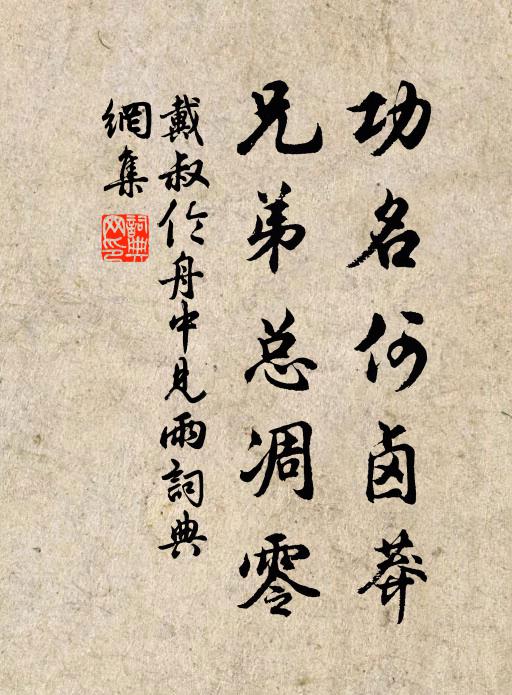 功名何卤莽
兄弟总凋零
戴叔伦舟中见雨詞典
網集
詞典
网印